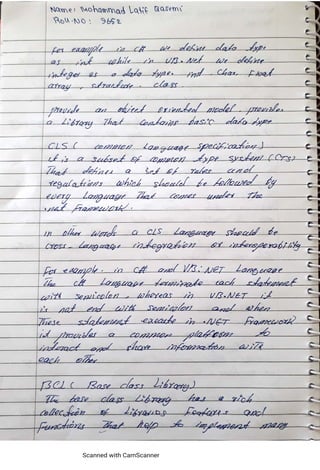 Name: Mohammad Latif Qasemi
Roll.No: 3652
For example in C# we define data type
as int while in VB.Net we define
integer as a data type. int char float
array, structure, class.
provide an object oriented model, provide
a Library That contains basic data type
CLS (common Language specification)
it is a subset of common type system (CTS)
That defines a set of rules and
regulations which should be followed by
every Language That comes under The
.net Framework.
in other words a CLS Language should be
cross-Language integration or interoperability
For example. in C# and VB.NET Language
The C# Language terminate each statement
with semicolon, whereas in VB.NET it
is not end with semicolon and when
These statement execute in .NET Framework
it provides a common platform to
interact and share information with
each other
BCL (Base class Library)
The base class Library has a rich
collection of Libraries features and
functions That help to implement many
Scanned with CamScanner